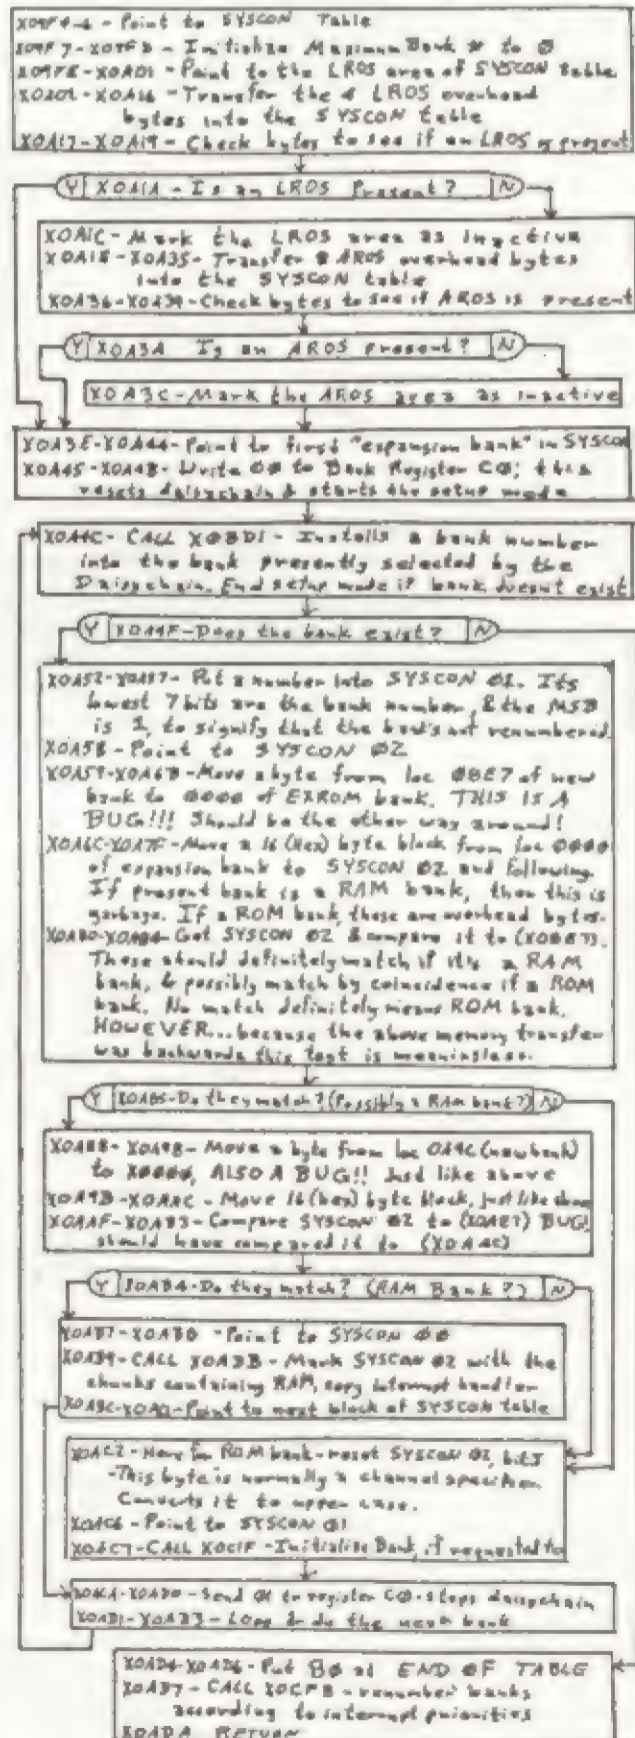 X09F4-6 - Point to SYSCON Table
X09F7-X09F8 - Initialize Maximum Bank # to 0
X09FE-X0A01 - Point to the LROS area of SYSCON table
X0A02-X0A16 - Transfer the 8 LROS overhead
bytes into the SYSCON table
X0A17-X0A19 - Check bytes to see if an LROS is present
Y X0A1A - Is an LROS Present? N
X0A1C - Mark the LROS area as inactive
X0A1E-X0A35 - Transfer 8 AROS overhead bytes
into the SYSCON table
X0A36-X0A39 - Check bytes to see if AROS is present
Y X0A3A Is an AROS present? N
X0A3C - Mark the AROS area as inactive
X0A3E-X0A44 - Point to first "expansion bank" in SYSCON
X0A45-X0A4B - Write 00 to Bank Register C0; this
resets daisychain & starts the setup mode
X0A4C - CALL X0BD1 - Installs a bank number
into the bank presently selected by the
Daisychain. End setup mode if bank doesn't exist
Y X0A4F - Does the bank exist? N
X0A52-X0A57 - Put a number into SYSCON 01. Its
lowest 7 bits are the bank number, & the MSB
is 1, to signify that the bank's not renumbered.
X0A58 - Point to SYSCON 02
X0A59-X0A6B - Move a byte from loc 08E7 of new
bank to 0000 of EXROM bank. THIS IS A
BUG!!! Should be the other way around!
X0A6C-X0A7F - Move a 16 (Hex) byte block from loc 0000
of expansion bank to SYSCON 02 and following
If present bank is a RAM bank, then this is
garbage. If a ROM bank, these are overhead bytes.
X0A80-X0A84 - Get SYSCON 02 & compare it to (X08E7).
These should definitely match if it's a RAM
bank, & possibly match by coincidence if a ROM
bank. No match definitely means ROM bank.
HOWEVER... because the above memory transfer
was backwards this test is meaningless.
Y X0A85 - Do they match? (Possibly a RAM bank?) N
X0A88-X0A9B - Move a byte from loc 0A4C (new bank)
to X0000, ALSO A BUG!! Just like above
X0A9B-X0AAC - Move 16 (hex) byte block, just like above
X0AAF-X0AB3 - Compare SYSCON 02 to (X0AE7) BUG!
should have compared it to (X0A4C)
Y X0AB4 - Do they match? (RAM Bank?) N
X0AB7-X0AB8 - Point to SYSCON 00
X0AB9 - CALL X0ADB - Mark SYSCON 02 with the
chunks containing RAM, copy interrupt handler
Point to next block of SYSCON table
X0AC2 - Here for ROM bank - reset SYSCON 02, bit 5
- This byte is normally a channel specifier.
Converts it to upper case.
X0AC6 - Point to SYSCON 01
X0AC7 - CALL X0C1F - Initialise Bank, if requested to
X0ACA-X0AD0 - Send 01 to register C0 - steps daisychain
X0AD1-X0AD3 - Loop & do the next bank
X0AD4-X0AD6 - Put 80 at END OF TABLE
X0AD7 - CALL X0CFB - renumber banks
according to interrupt priorities
X0ADA RETURN